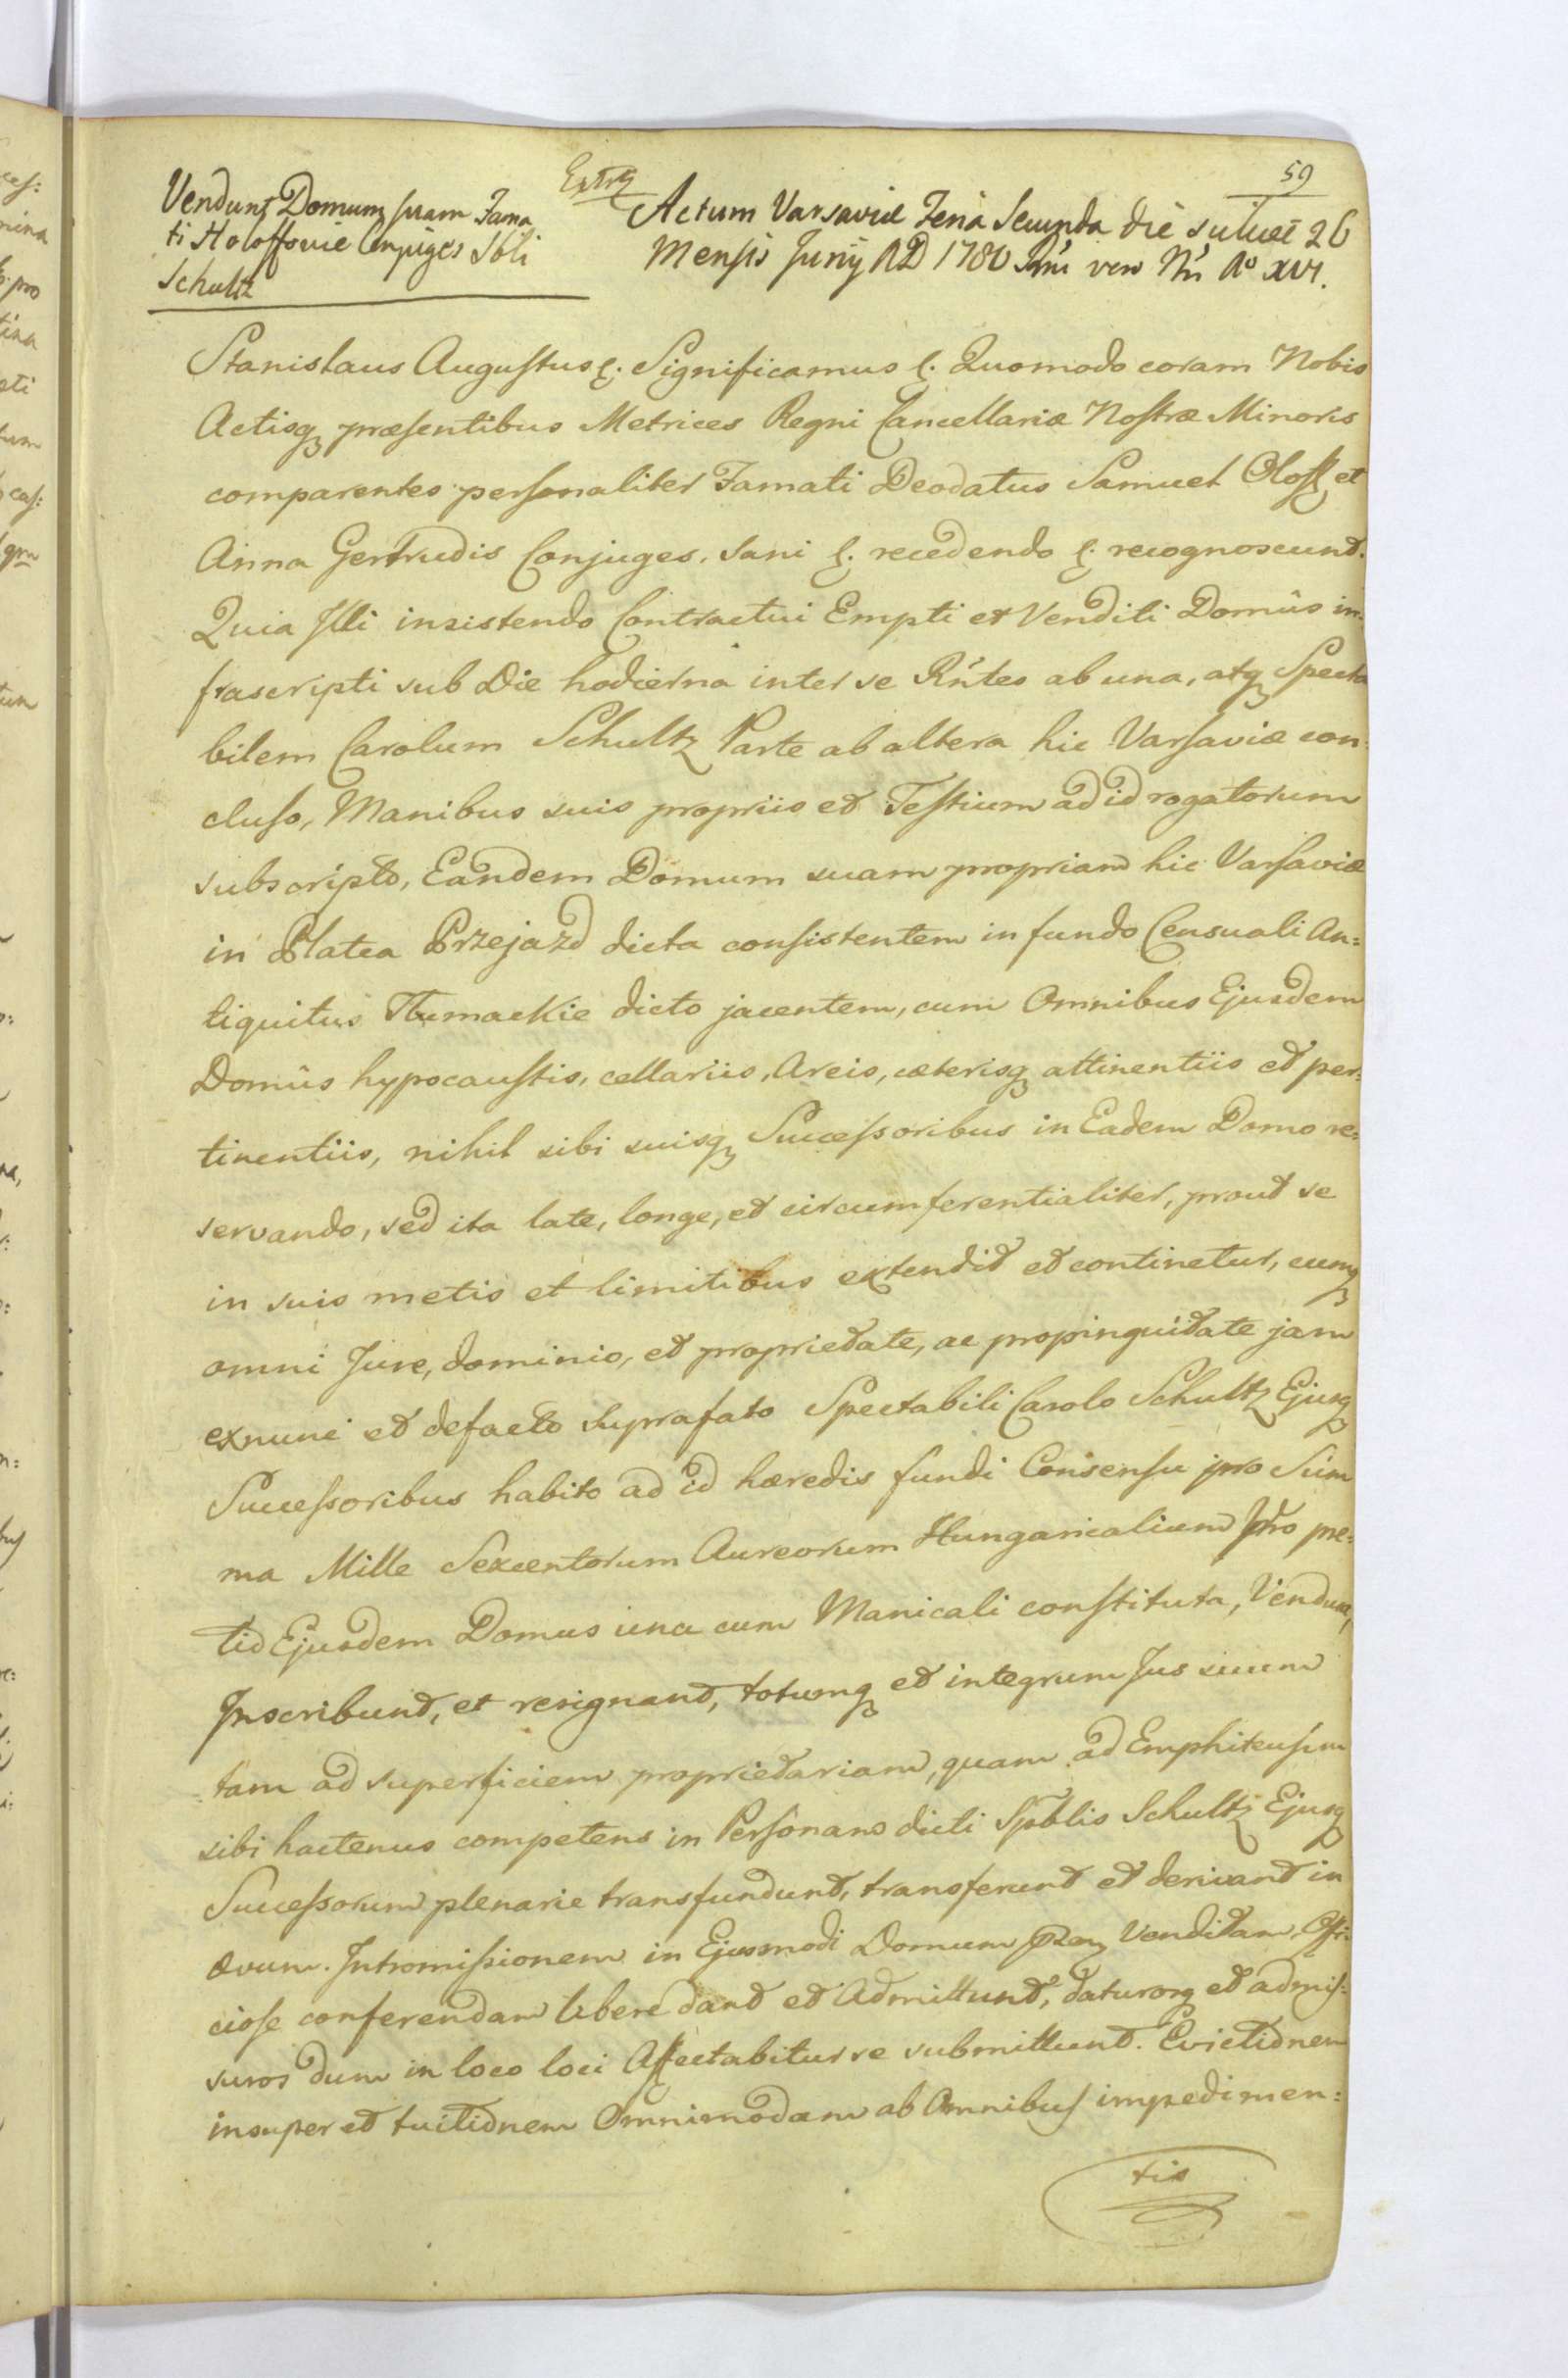 59
Extr
Vendunt Domum suam Fama
ti Holoffowie Conjuges Sbli
Schultz
Actum Varsaviæ Feria Secunda die scilicet 26
Mensis Junij AD 1780 Rni vero Nri Aº XVI.
Stanislaus Augustus &. Significamus &. Quomodo coram Nobis
Actisq præsentibus Metrices Regni Cancellariæ Nostræ Minoris
comparentes personaliter Famati Deodatus Samuel Oloff et
Anna Gertrudis Conjuges, sani &. recedendo &. recognoscunt.
Quia Illi insistendo Contractui Empti et Venditi Domûs in-
frascripti sub Die hodierna inter se Rntes ab una, atq Specta
bilem Carolum Schultz Parte ab altera hic Varsaviæ con-
cluso, Manibus suis propriis et Testium ad id rogatorum
subscripto, Eandem Domum suam propriam hic Varsaviæ
in Platea Przejazd dicta consistentem in fundo Censuali An=
tiquitus Tłumackie dicto jacentem, cum Omnibus Ejusdem
Domûs hypocaustis, cellariis, Areis, cæterisq attinentiis et per=
tinentiis, nihil sibi suisq Successoribus in Eadem Domo re=
servando, sed ita late, longe, et circumferentialiter, prout se
in suis metis et limitibus extendit et continetur, cumq
omni Jure, dominio, et proprietate, ac propinquitate jam
exnunc et defacto suprafato Spectabili Carolo Schultz Ejusq
Successoribus habito ad id hæredis fundi Consensu pro Sum
ma Mille Sexcentorum Aureorum Hungaricalium pro pre=
tio Ejusdem Domus una cum Manicali constituta, Vendunt,
Inscribunt, et resignant, totumq et integrum Jus suum
tam ad superficiem proprietariam, quam ad Emphiteusim
sibi hactenus competens in Personam dicti Spblis Schultz Ejusq
Successorum plenarie transfundunt, transferunt et derivant in
ævum. Intromissionem in Ejusmodi Domum Venditam Offi=
ciose conferendam libere dant et Admittunt, daturosq et admis=
suros dum in loco loci Affectabitur se submittunt. Evictionem
insuper et tuitionem Omnimodam ab Omnibus impedimen=
tis